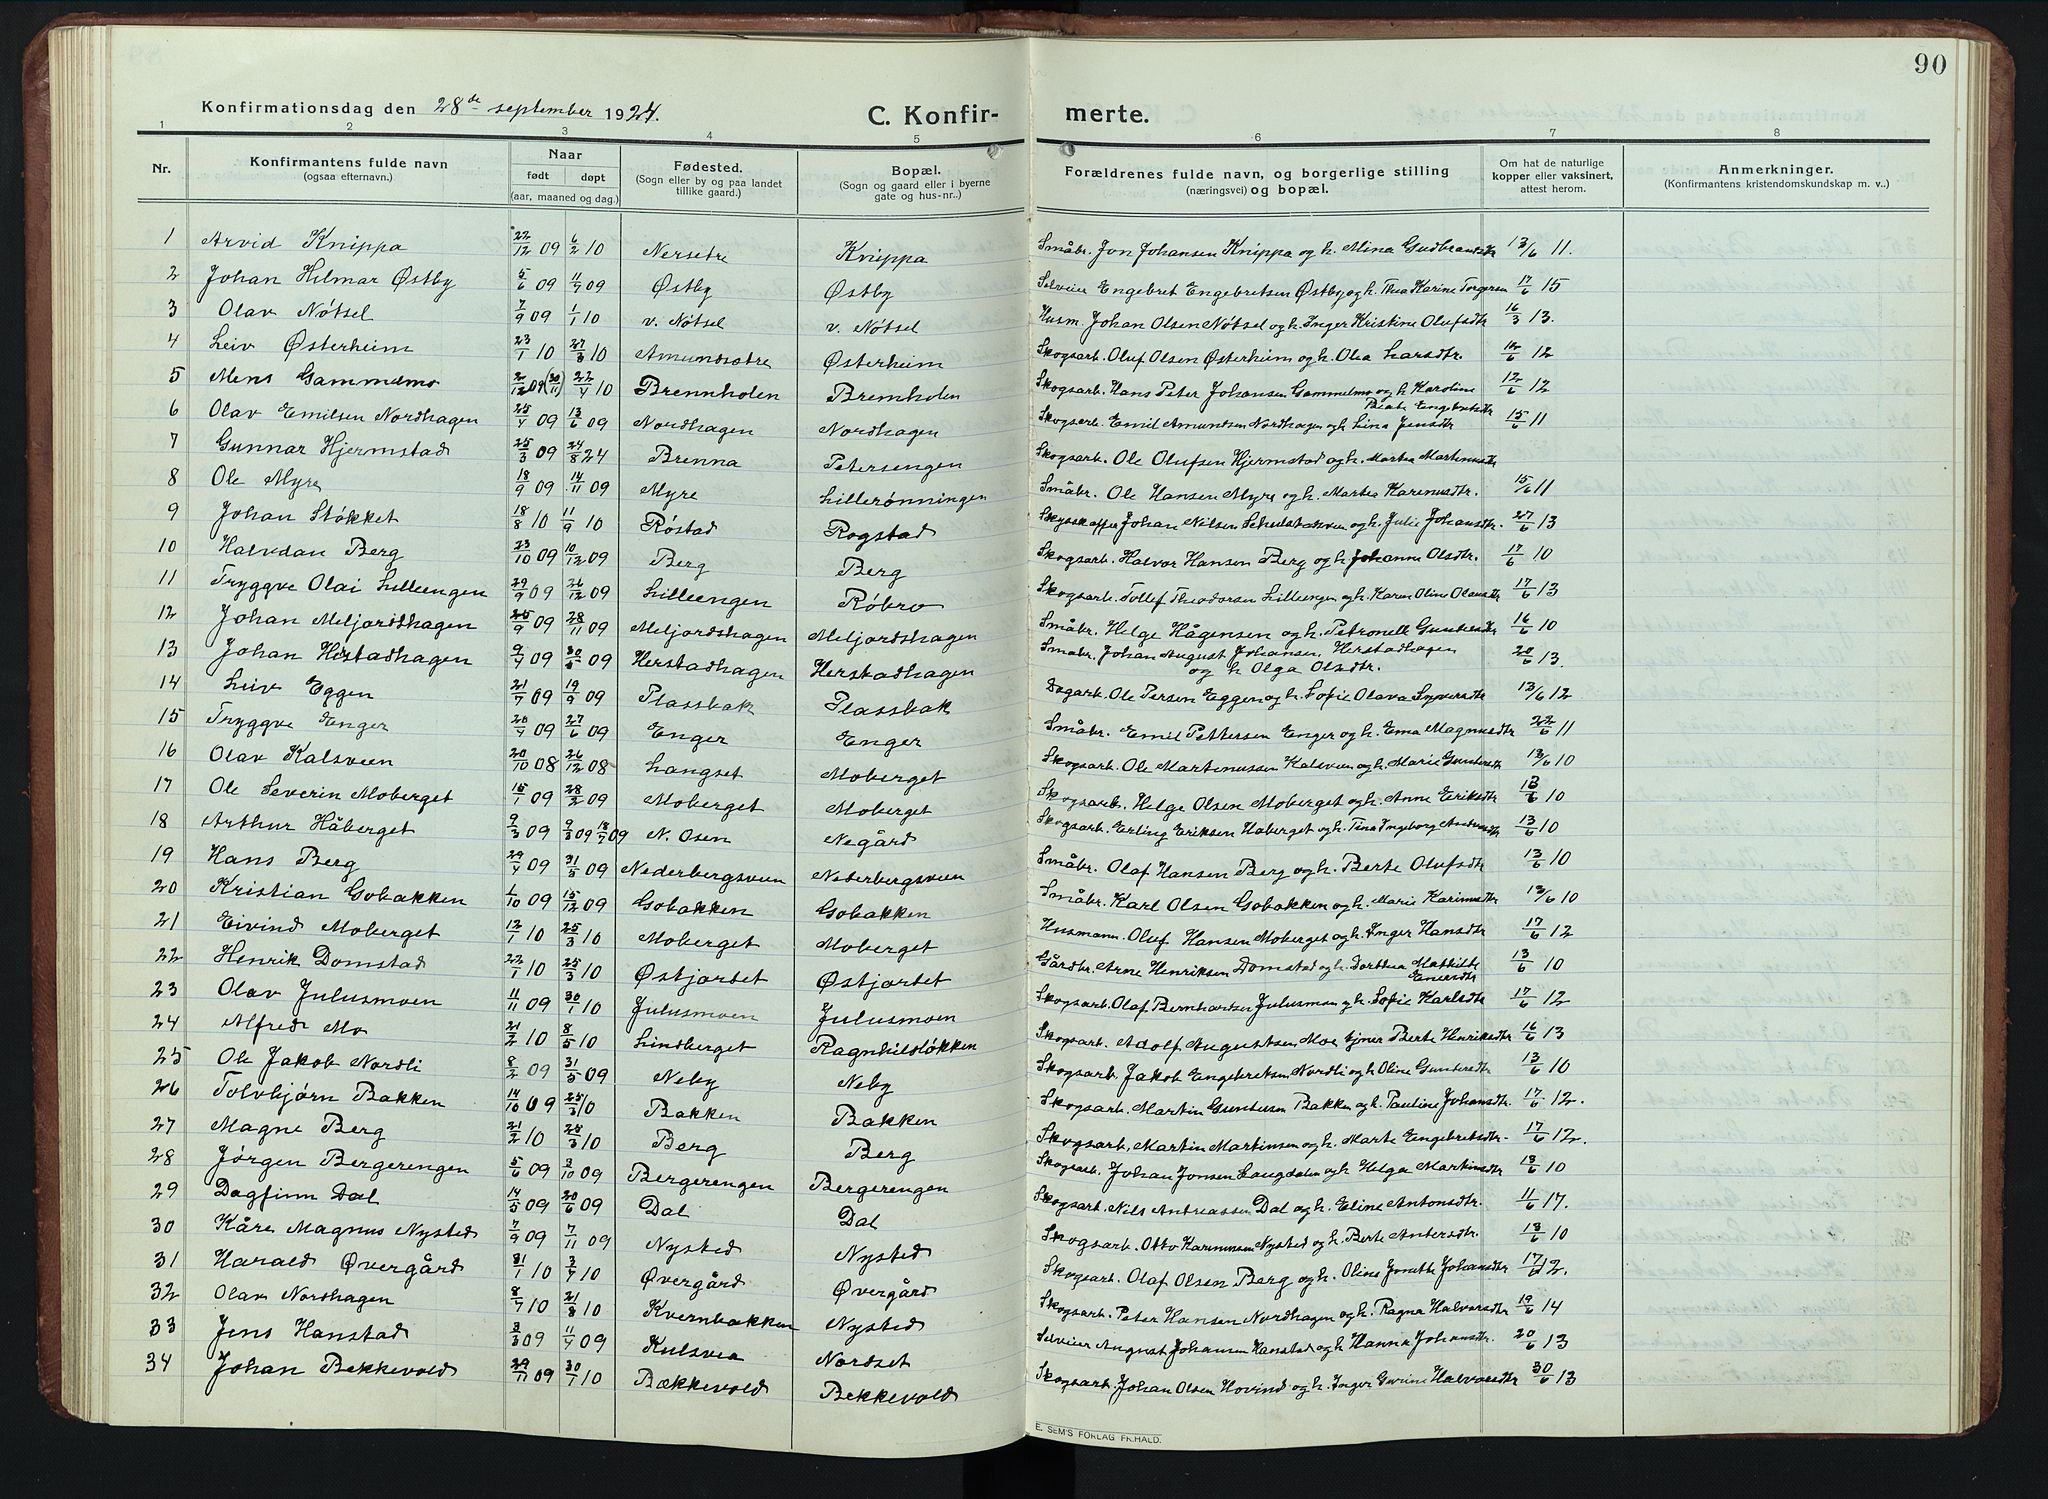 90
Konfirmationsdag den 28de september 1924.
C. Konfirmerte.
1 2 3 4 5 6 7 8
Nr. Konfirmantens fulde navn (ogsaa efternavn.) Naar født døpt (aar, maaned og dag.) Fødested. (Sogn eller by og paa landet tillike gaard.) Bopæl. (Sogn og gaard eller i byerne gate og hus-nr..) Forældrenes fulde navn, og borgerlige stilling (næringsvei) og bopæl. Om hat de naturlige kopper eller vaksinert, attest herom. Anmerkninger. (Konfirmantens kristendomskundskap m. v..)
1 Arvid Knippa 22/12 09 6/2 10 Nersetre Knippa Småbr. Jon Johansen Knippa og h. Mina Gudbrandsdtr 13/6 11.
2 Johan Hilmar Østby 5/6 09 11/7 09 Østby Østby Selveier Engebret Engebretsen Østby og h. Thea Karine Torgersen 17/6 15
3 Olav Nøtsel 7/9 09 1/1 10 v. Nøtsel v. Nøtsel Husm. Johan Olsen Nøtsel og h. Inger Kristine Olufsdtr 16/3 13.
4 Leiv Østerheim 23/1 10 27/3 10 Amundsætre Østerheim Skogsarb. Oluf Olsen Østerheim og h. Olea Larsdtr. 12/6 12
5 Mens Gammelmo 2/12 09 (30/11) 22/4 10 Brennholen Bremholen Skogsarb. Hans Peter Johansen Gammelmo og h. Karoline Beate Engebretsdtr 12/6 12
6 Olav Emilsen Nordhagen 25/4 09 13/6 09 Nordhagen Nordhagen Skogsarb. Emil Amundsen Nordhagen og h. Lina Jensdtr 15/6 11
7 Gunnar Hjermstad 25/3 09 24/8 24 Brenna Petersengen Skogsarb. Ole Olufsen Hjermstad og h. Martea Martinusdtr
8 Ole Myre 18/9 09 14/11 09 Myre Lillerønningen Småbr. Ole Hansen Myre og h. Martea Karenusdtr. 15/6 11
9 Johan Støkket 18/8 10 11/9 10 Røstad Rogstad Skysskaffer Johan Nilsen og h. Julie Johansdtr. 27/6 13
10 Halvdan Berg 23/10 09 10/12 09 Berg Berg Skogsarb. Halvor Hansen Berg og h. Johanne Olsdtr. 17/6 10
11 Tryggve Olai Lilleengen 29/9 09 26/12 09 Lilleengen Røbro Skogsarb. Tollef Theodorsen Lilleengen og h. Karen Oline Olausdtr 17/6 13
12 Johan Meljordshagen 25/9 09 28/11 09 Meljordshagen Meljordshagen Småbr. Helge Hågensen og h. Petronelle Gundersdtr 16/6 10
13 Johan Herstadhagen 9/4 09 30/5 09 Herstadhagen Herstadhagen Småbr. Johan August Johansen Herstadhagen og h Olga Olsdtr. 20/6 13.
14 Leiv Eggen 21/7 09 19/9 09 Plassbak Plassbak Dagarb. Ole Persen Eggen og h. Sofie Olava Syversdtr 13/6 12
15 Tryggve Enger 20/4 09 27/6 09 Enger Enger Småbr. Emil Pettersen Enger og h. Ema Magnusdtr 22/6 11
16 Olav Kalsveen 20/10 08 26/12 08 Langset Moberget Skogsarb. Ole Martinussen Kalsveen og h. Marie Gundersdtr 13/6 10
17 Ole Severin Moberget 15/1 09 28/2 09 Moberget Moberget Skogsarb. Helge Olsen Moberget og h. Anne Eriksdtr 13/6 10
18 Arthur Håberget 9/3 09 9/3 09 18/7 09 N. Osen Negård Skogsarb. Erling Eriksen Haberget og h. Tina Ingeborg Andersdtr 13/6 10
19 Hans Berg 29/4 09 31/5 09 Nederbergsveen Nederbergsveen Småbr. Olaf Hansen Berg og h. Berte Olufsdtr 13/6 10
20 Kristian Gobakken 1/10 09 15/12 09 Gobakken Gobakken Småbr. Karl Olsen Gobakken og h. Marie Karinusdtr 13/6 10
21 Eivind Moberget 12/1 10 25/3 10 Moberget Moberget Husmann. Oluf Hansen Moberget og h. Inger Hansdtr 17/6 12
22 Henrik Domstad 22/1 10 25/3 10 Østjordet Østjordet Gårdbr. Arne Henriksen Domstad og h. Dorthea Mathilde Enersdtr 13/6 10
23 Olav Julusmoen 11/11 09 30/1 10 Julusmoen Julusmoen Skogsarb. Olaf Bernhardsen Julusmoen og h. Sofie Karlsdtr 17/6 12
24 Alfred Mo 21/2 10 8/5 10 Lindberget Ragnhildløkken Skogsarb. Adolf Augustsen Moe Berte Henriksdtr 16/6 13
25 Ole Jakob Nordli 8/2 09 31/5 09 Neby Neby Skogsarb. Jakob Engebretsen Nordli og h. Oline Gundersdtr 13/6 10
26 Tolvbjørn Bakken 14/10 09 25/3 10 Bakken Bakken Skogsarb. Martin Gundersen Bakken og h. Pauline Johansdtr 17/6 12.
27 Magne Berg 21/2 10 28/3 10 Berg Berg Skogsarb. Martin Martinsen og h. Marte Engebretsdtr. 17/6 12.
28 Jørgen Bergerengen 5/6 09 3/10 09 Bergerengen Bergerengen Skogsarb. Johan Jonsen Laugdalen og h Helga Martinsdtr 13/6 10
29 Dagfinn Dal 14/5 09 20/6 09 Dal Dal Skogsarb. Nils Andreassen Dal og h. Eline Antonsdtr. 11/6 17.
30 Kåre Magnus Nysted 7/9 09 7/11 09 Nysted Nysted Skogsarb. Otto Karinusen Nysted og h. Berte Andersdtr. 13/6 10
31 Harald Øvergård 31/1 10 3/4 10 Øvergård Øvergård Skogsarb. Olaf Olsen Berg og h. Oline Jonette Johansdtr 17/6 12.
32 Olav Nordhagen 8/7 10 21/8 10 Kvernbakken Nysted Skogsarb. Peter Hansen Nordhagen og h. Ragna Halvorsdtr 19/6 14
33 Jens Hanstad 3/3 09 11/4 09 Kulsvea Nordset Selveier August Johansen Hanstad og h Hanna Johansdtr. 20/6 13
34 Johan Bekkevold 29/11 09 30/1 10 Bækkevold Bekkevold Skogsarb. Johan Olsen Hovind og h. Inger Gurine Halvorsdtr 30/6 13
E. SEM'S FORLAG FR.HALD.